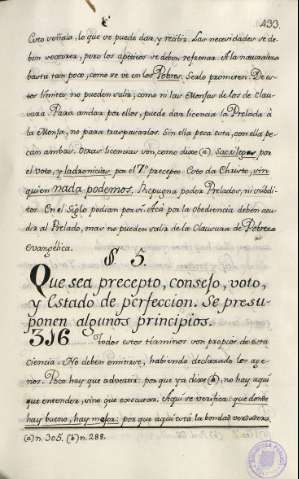 433.
Coto vedado, lo que se puede dar, y recibir. Las necesidades se de-
ben socorrer, pero los apetitos se deben refrenar. A la naturaleza
basta tan poco, como se ve en los Pobres. Serlo prometen. De es-
tos limites, no pueden salir, como ni las Monjas de los de Clau-
sura. Para andar por ellos, puede dar licencia la Prelada à
la Monja, no para traspasarlos. Sin ella peca esta, con ella pe-
can ambas. Otras licencias son, como dixe (a), Sacrilegas, por
el voto, y ladronicias, por el 7º precepto. Coto de Christo, sin
quien nada podemos. Ninguno podra Prelador, ni subdi-
tos. En el Siglo pedian por sí. Acà por la Obediencia deben acu-
dir al Prelado, mas no pueden salir de la Clausura de Pobreza
evangélica.
§ 5.
Que sea precepto, consejo, voto,
y Estado de perfeccion. Se presu-
ponen algunos principios.
316 Todos estos terminos son propios de esta
ciencia. No deben omitirse, habiendo declarado los age-
nos. Poco hay que advertir: por que ya dixe (b), no hay aqui
que entender, sino que executar. Aqui se verifica: que donde
hay bueno, hay mejor: por que aqui està la bondad verdadera.
(a) n. 305. (b) n. 288.